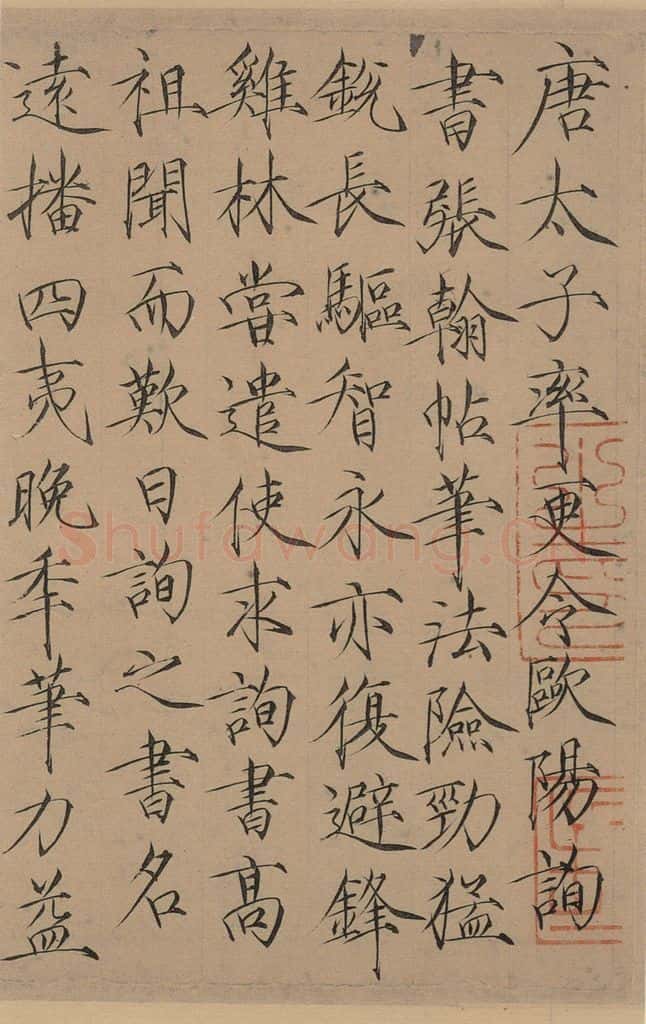 唐太子率更令歐陽詢
書張翰帖筆法險勁猛
銳長驅智永亦復避鋒
雞林嘗遣使求詢書高
祖聞而歎曰詢之書名
遠播四夷晚年筆力益
Shufawang.cn